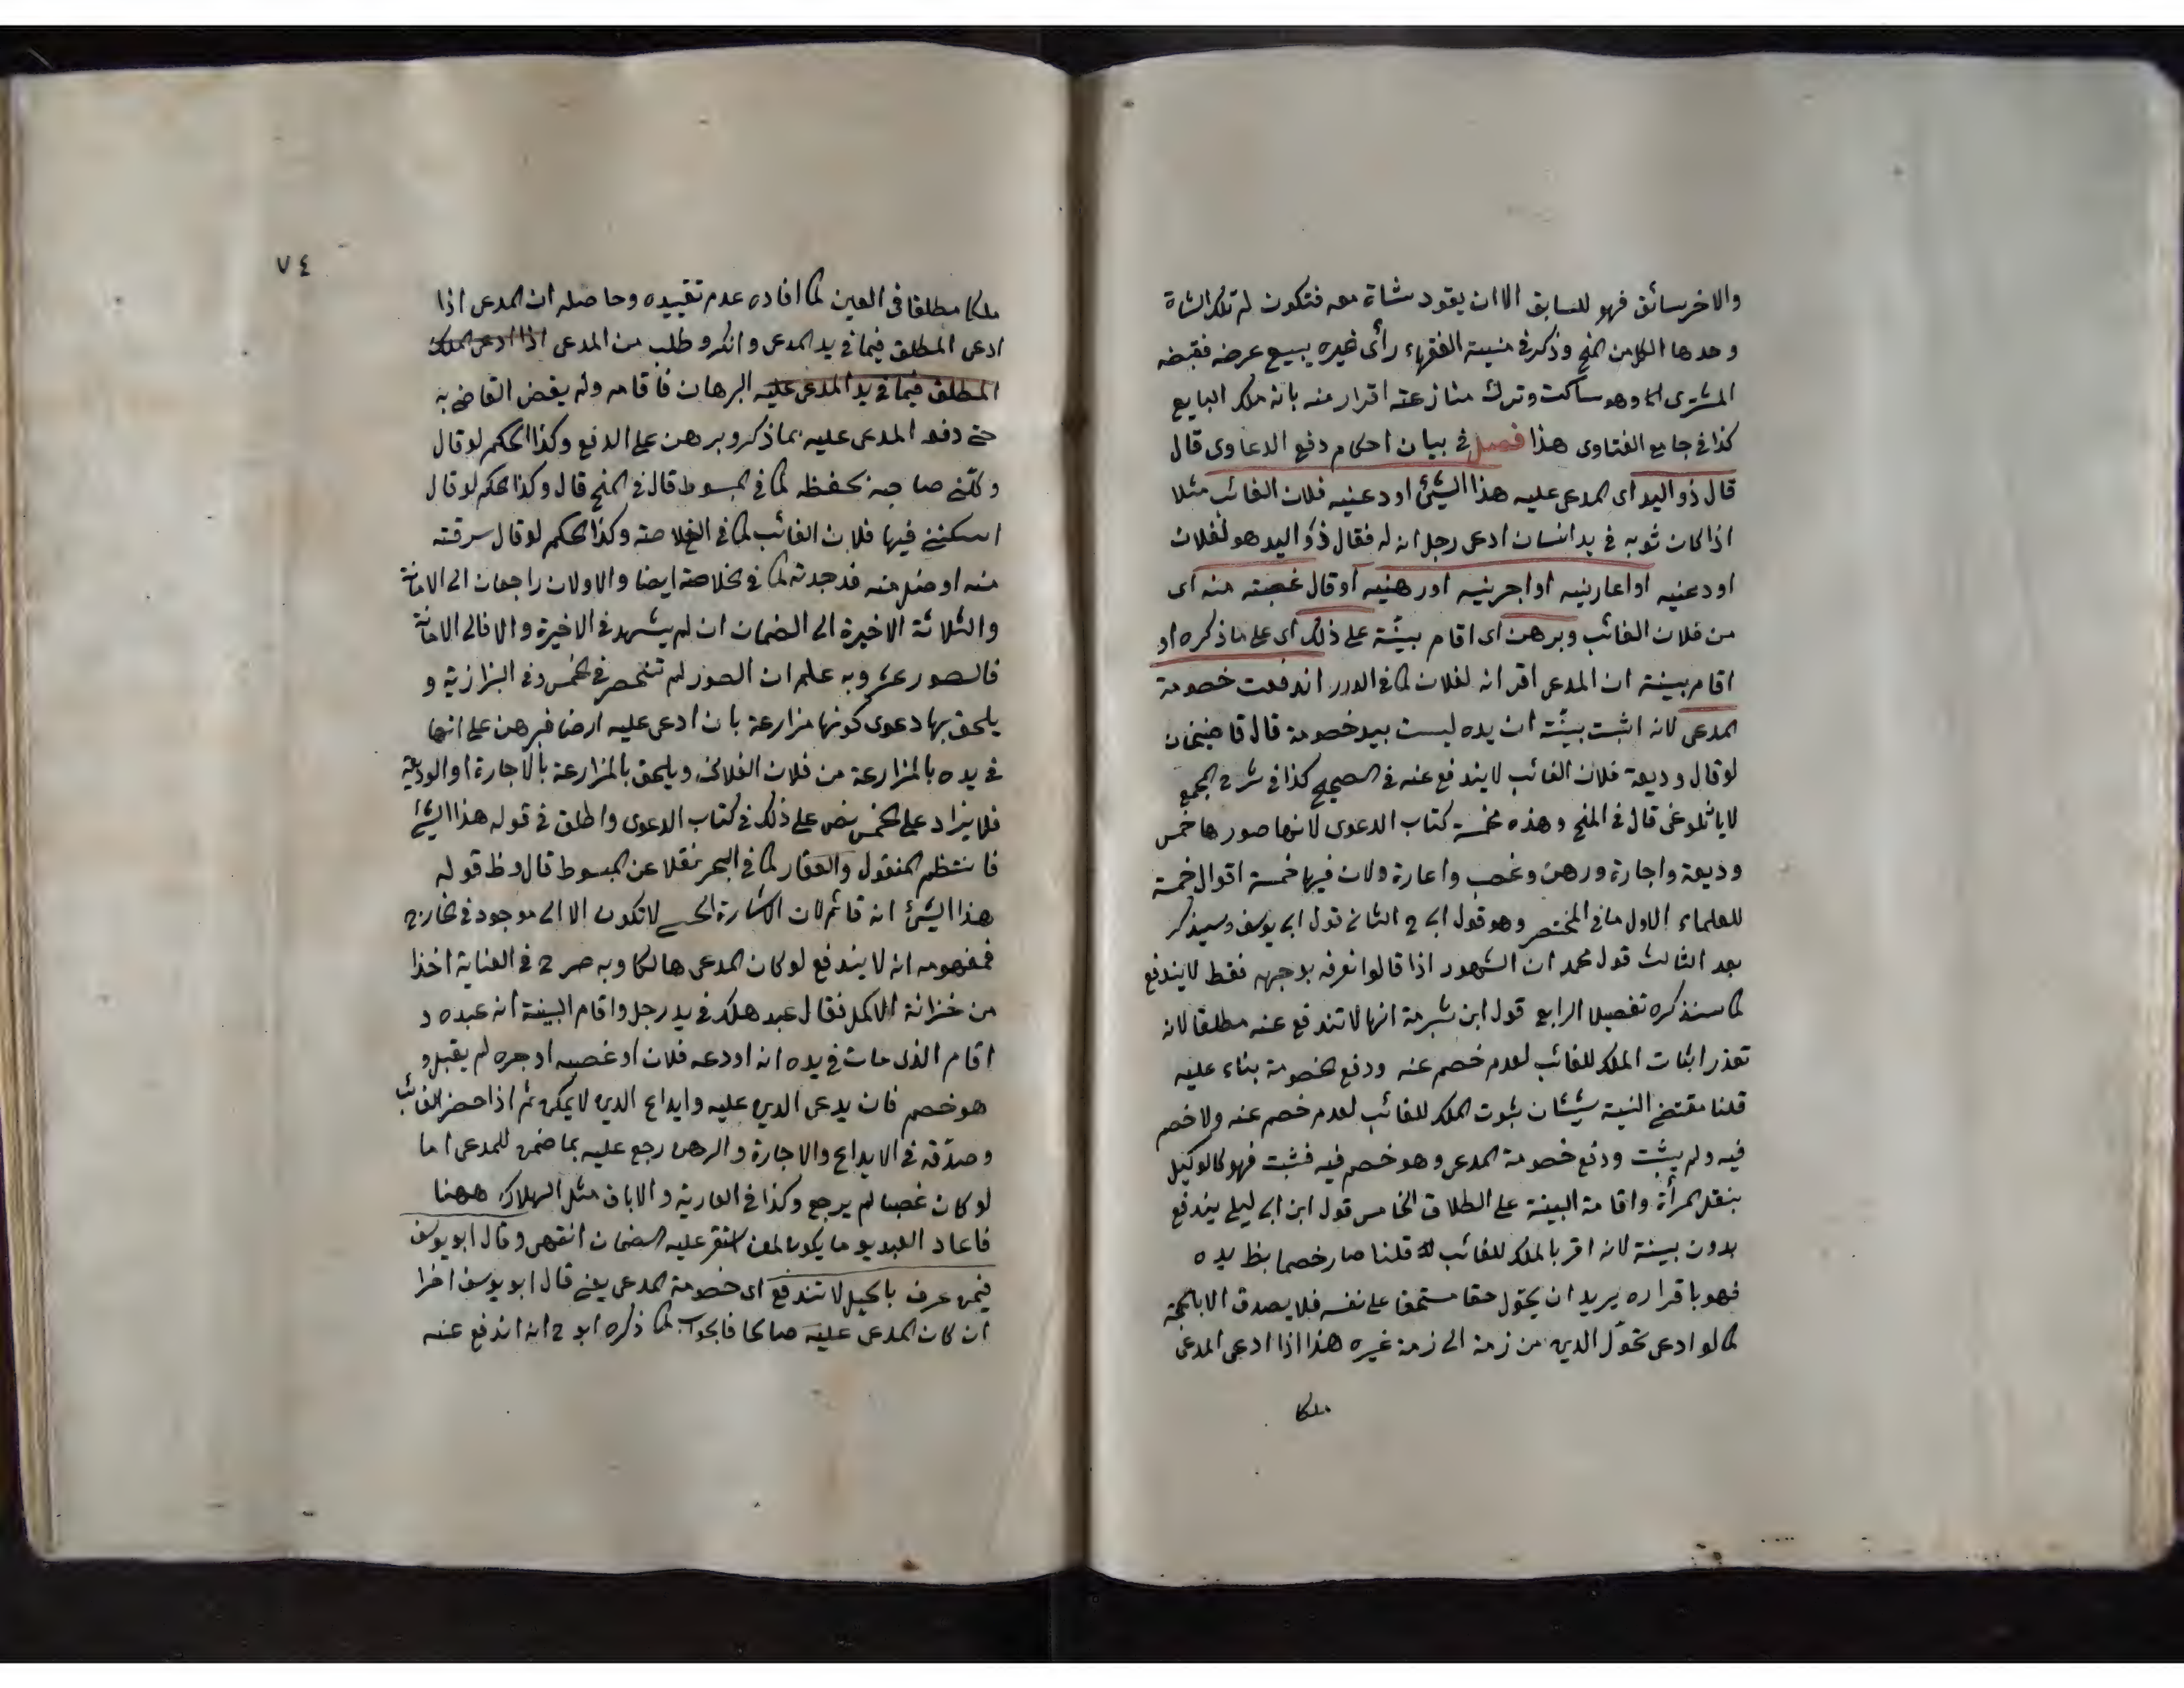 والاخر سائق فهو للسابق الا ان يقود شاة معه فتكون له تلك الشاة
وحدها الكل من المنح وذكر في منية الفقهاء رأى غيره يبيع عرضه فقبضه
المشترى وهو ساكت وترك منازعته اقرار منه بانه ملك البايع
كذا في جامع الفتاوى هذا فصل في بيان احكام دفع الدعاوى قال
قال ذو اليد اى المدعى عليه هذا الشئ اودعنيه فلان الغائب مثلا
اذا كان ثوبه في يد انسان ادعى رجل انه له فقال ذو اليد هو لفلان
اودعنيه او اعارنيه او اجرنيه او رهنيه او قال غصبته منه اى
من فلان الغائب وبرهن اى اقام بينة على ذلك اى على ما ذكره او
اقام بينة ان المدعى اقر انه لفلان كما في الدرر اندفعت خصومة
المدعى لانه اثبت ببينة ان يده ليست بيد خصومة قال قاضيخان
لو قال وديعة فلان الغائب لا يندفع عنه في الصحيح كذا في شرح المجمع
قال في المنح وهذه مخمسة كتاب الدعوى لانها صورها خمس
وديعة واجارة ورهن وغصب واعارة ولان فيها خمسة اقوال خمسة
للعلماء الاول ما في المختصر وهو قول ابى ح الثانى قول ابى يوسف وسيذكر
بعد الثالث قول محمد ان الشهود اذا قالوا نعرفه بوجهه فقط لا يندفع
كما سنذكره تفصيلا الرابع قول ابن شبرمة انها لا تندفع عنه مطلقا لانه
تعذر اثبات الملك للغائب لعدم خصم عنه ودفع الخصومة بناء عليه
قلنا مقتضى البينة شيئان ثبوت الملك للغائب لعدم خصم عنه ولا خصم
فيه ولم يثبت ودفع خصومة المدعى وهو خصم فيه فثبت فهو كالوكيل
بنقل المرأة واقامة البينة على الطلاق الخامس قول ابن ابى ليلى يندفع
بدون بينة لانه اقر بالملك للغائب قلنا صار خصما بظ يده
فهو باقراره يريد ان يحول حقا مستحقا على نفسه فلا يصدق الا بالحجة
كما لو ادعى تحول الدين من ذمة الى ذمة غيره هذا اذا ادعى المدعى
ملكا
٧٤
ملكا مطلقا في العين كما افاده عدم تقييده وحاصله ان المدعى اذا
ادعى المطلق فيما في يد المدعى وانكر وطلب من المدعى اذا ادعى الملك
المطلق فيما في يد المدعى عليه البرهان فاقامه ولم يقض القاضى به
حتى دفعه المدعى عليه بما ذكر وبرهن على الدفع وكذا الحكم لو قال
وكلنى صاحبه بحفظه كما في المبسوط قال في المنح قال وكذا الحكم لو قال
اسكننى فيها فلان الغائب كما في الخلاصة وكذا الحكم لو قال سرقته
منه او ضل منه فوجدته كما في الخلاصة ايضا والاولان راجعان الى الامانة
والثلاثة الاخيرة الى الضمان ان لم يشهد في الاخيرة والا فالى الامانة
فالصور عشر وبه علم ان الصور لم تنحصر في الخمس وفي البزازية و
يلحق بها دعوى كونها مزارعة بان ادعى عليه ارضا فبرهن على انها
في يده بالمزارعة من فلان الفلانى ويلحق بالمزارعة بالاجارة او الوديعة
فلا يزاد على الخمس نص على ذلك في كتاب الدعوى واطلق في قوله هذا الشئ
فانتظم المنقول والعقار كما في البحر نقلا عن المبسوط قال وظ قوله
هذا الشئ انه قائم لان الاشارة الحسية لا تكون الا الى موجود في الخارج
فمفهومه انه لا يندفع لو كان المدعى هالكا وبه صرح في العناية اخذا
من خزانة الاكمل فقال عبد هلك في يد رجل واقام البينة انه عبده و
اقام الذى مات في يده انه اودعه فلان او غصبه او اجره لم يقبل و
هو خصم فان يدعى الدين عليه وايداع الدين لا يمكن ثم اذا حضر الغائب
وصدقه في الايداع والاجارة والرهن رجع عليه بما ضمن للمدعى اما
لو كان غصبا لم يرجع وكذا في العارية والاباق مثل الهلاك ههنا
فاعاد العبد يوما يكون لمن استقر عليه الضمان انتهى وقال ابو يوسف
فيمن عرف بالحيل لا تندفع اى خصومة المدعى يعنى قال ابو يوسف اخرا
ان كان المدعى عليه صالحا فالجواب كما ذكره ابو ح انه اندفع عنه